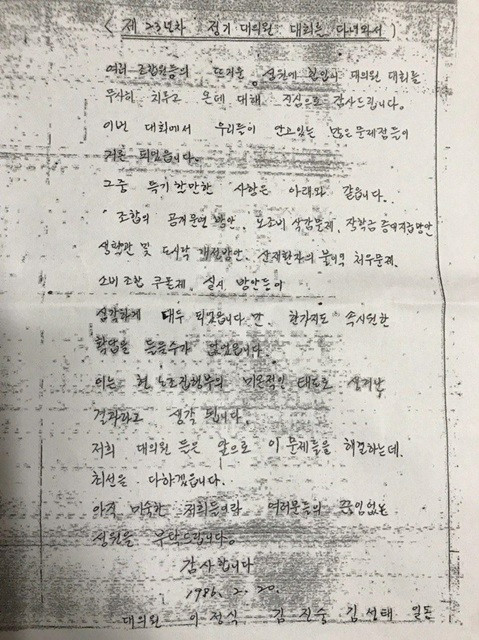 < 제 23년차 정기 대의원 대회를 다녀와서 >
여러 조합원들의 뜨거운 성원에 힘입어 대의원 대회를
무사히 치루고 온데 대해 진심으로 감사드립니다.
이번 대회에서 우리들이 안고있는 많은 문제점들이
거론 되었읍니다.
그중 특기 할만한 사항은 아래와 같습니다.
조합의 공개운영 방안, 노조비 삭감문제, 장학금 증여지급방안
생학관 및 도시락 개선방안, 산재환자의 불이익 처우문제,
소비조합 쿠폰제, 실시 방안등이
심각하게 대두 되었읍니다 만 한가지도 속시원한
확답을 들을수가 없었읍니다
이는 현 노조집행부의 미온적인 태도로 생겨난
결과라고 생각 됩니다.
저희 대의원 들은 앞으로 이 문제들을 해결하는데.
최선을 다하겠읍니다.
아직 미숙한 저희들이라 여러분들의 끊임없는
성원을 부탁드립니다.
감사합니다
1986. 2. 20.
대의원 이정식 김진숙 김성태 일동